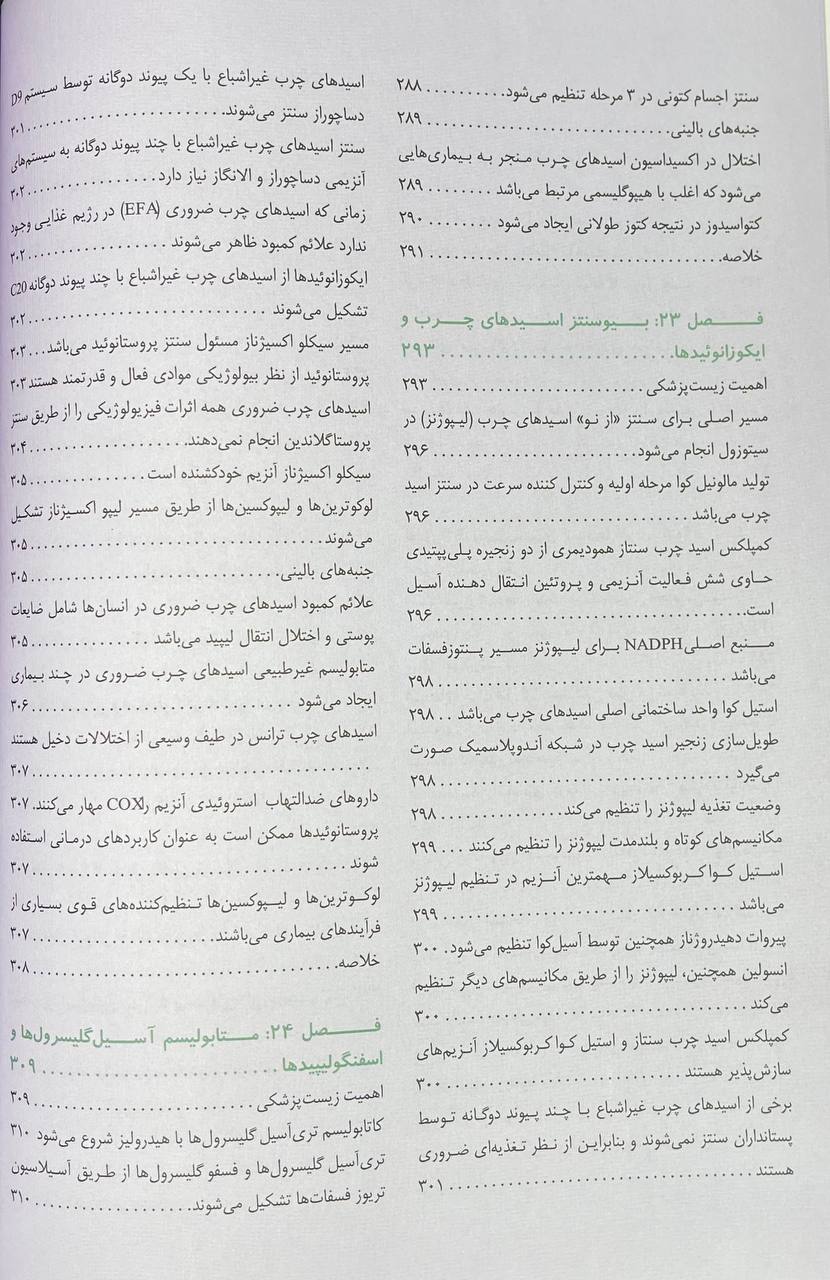 سنتز اجسام کتونی در ۳ مرحله تنظیم می‌شود.......... ۲۸۸
جنبه‌های بالینی................................ ۲۸۹
اختلال در اکسیداسیون اسیدهای چرب منجر به بیماری‌هایی
می‌شود که اغلب با هیپوگلیسمی مرتبط می‌باشد ........ ۲۸۹
کتواسیدوز در نتیجه کتوز طولانی ایجاد می‌شود ........ ۲۹۰
خلاصه........................................ ۲۹۱
فـــصل ۲۳: بـــیوسنتز اسـیدهای چـــرب و
ایکوزانوئیدها........................ ۲۹۳
اهمیت زیست‌پزشکی............................. ۲۹۳
مسیر اصلی برای سنتز «از نو» اسیدهای چرب (لیپوژنز) در
سیتوزول انجام می‌شود........................... ۲۹۶
تولید مالونیل کوا مرحله اولیه و کنترل کننده سرعت در سنتز اسید
چرب می‌باشد ................................. ۲۹۶
کمپلکس اسید چرب سنتاز همودیمری از دو زنجیره پلی‌پپتیدی
حـاوی شش فـعالیت آنـزیمی و پـروتئین انتقال دهـنده آسـیل
است......................................... ۲۹۶
مــنبع اصـلیNADPH بـرای لیـپوژنز مسـیر پـنتوزفسفات
می‌باشد ..................................... ۲۹۸
استیل کوا واحد ساختمانی اصلی اسیدهای چرب می‌باشد .. ۲۹۸
طویل‌سازی زنجیر اسید چرب در شبکه آنـدوپلاسمیک صـورت
می‌گیرد ..................................... ۲۹۸
وضعیت تغذیه لیپوژنز را تنظیم می‌کند............... ۲۹۸
مکانیسم‌های کوتاه و بلندمدت لیپوژنز را تنظیم می‌کنند ... ۲۹۹
اسـتیل کـوا کـربوکسیلاز مـهمترین آنـزیم در تـنظیم لیـپوژنز
می‌باشد ..................................... ۲۹۹
پیروات دهیدروژناز همچنین توسط آسیل‌کوا تنظیم می‌شود. ۳۰۰
انسولین همچنین، لیپوژنز را از طریق مکانیسم‌های دیگر تـنظیم
می‌کند ...................................... ۳۰۰
کمپلکس اسید چرب سنتاز و استیل کـوا کـربوکسیلاز آنـزیم‌های
سازش‌پذیر هستند .............................. ۳۰۰
برخی از اسیدهای چرب غیراشباع بـا چـند پـیوند دوگـانه تـوسط
پستانداران سنتز نمی‌شوند و بنابرایـن از نظر تـغذیه‌ای ضـروری
هستند ...................................... ۳۰۱
اسیدهای چرب غیراشباع با یک پیوند دوگانه توسط سیستم D9
دساچوراز سنتز می‌شوند......................... ۳۰۱
سنتز اسیدهای چرب غیراشباع با چند پیوند دوگانه به سیستم‌های
آنزیمی دساچوراز و الانگاز نیاز دارد................ ۳۰۲
زمانی که اسیدهای چرب ضروری (EFA) در رژیم غذایی وجود
ندارد علائم کمبود ظاهر می‌شوند .................. ۳۰۲
ایکوزانوئیدها از اسیدهای چرب غیراشباع با چند پیوند دوگانه C20
تشکیل می‌شوند .............................. ۳۰۲
مسیر سیکلو اکسیژناز مسئول سنتز پروستانوئید می‌باشد... ۳۰۳
پروستانوئید از نظر بیولوژیکی موادی فعال و قدرتمند هستند ۳۰۳
اسیدهای چرب ضروری همه اثرات فیزیولوژیکی را از طریق سنتز
پروستاگلاندین انجام نمی‌دهند..................... ۳۰۴
سیکلو اکسیژناز آنزیم خودکشنده است............... ۳۰۵
لوکوترین‌ها و لیپوکسین‌ها از طریق مسیر لیپو اکسـیژناز تشکیل
می‌شوند.................................... ۳۰۵
جنبه‌های بالینی................................ ۳۰۵
علائم کمبود اسیدهای چرب ضروری در انسان‌ها شامل ضایعات
پوستی و اختلال انتقال لیپید می‌باشد ............... ۳۰۵
متابولیسم غیرطبیعی اسیدهای چـرب ضـروری در چند بـیماری
ایجاد می‌شود ................................ ۳۰۶
اسیدهای چرب ترانس در طیف وسیعی از اختلالات دخیل هستند
............................................ ۳۰۷
داروهای ضدالتهاب استروئیدی آنزیم راCOX مهار می‌کنند. ۳۰۷
پروستانوئیدها ممکن است به عنوان کاربردهای درمـانی اسـتفاده
شوند ....................................... ۳۰۷
لوکـوترین‌ها و لیـپوکسین‌ها تـنظیم‌کننده‌های قـوی بسـیاری از
فرآیندهای بیماری می‌باشند...................... ۳۰۷
خلاصه...................................... ۳۰۸
فـــصل ۲۴: مـــتابولیسم آسـیل‌گلیسرول‌ها و
اسفنگولیپیدها........................ ۳۰۹
اهمیت زیست‌پزشکی........................... ۳۰۹
کاتابولیسم تری‌آسیل گلیسرول‌ها با هیدرولیز شروع می‌شود ۳۱۰
تری‌آسیل گلیسرول‌ها و فسفو گلیسرول‌ها از طـریق آسـیلاسیون
تریوز فسفات‌ها تشکیل می‌شوند................... ۳۱۰